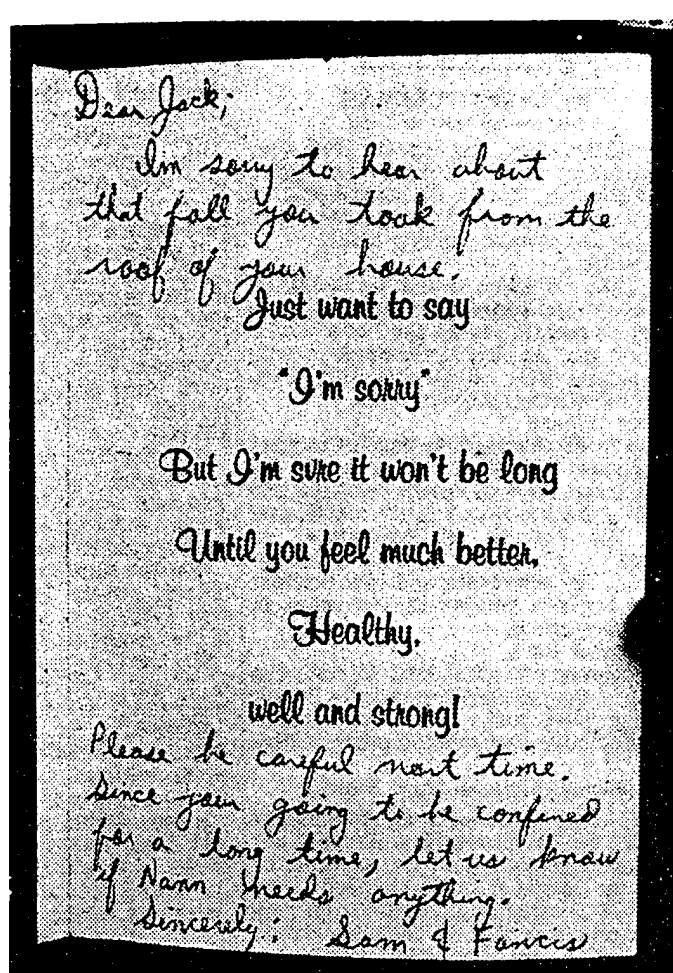 Dear Jack;
Im sorry to hear about
that fall you took from the
roof of your house.
Just want to say
"I'm sorry"
But I'm sure it won't be long
Until you feel much better,
Healthy,
well and strong!
Please be careful next time.
Since your going to be confined
for a long time, let us know
if Nann needs anything.
Sincerely; Sam & Fancis